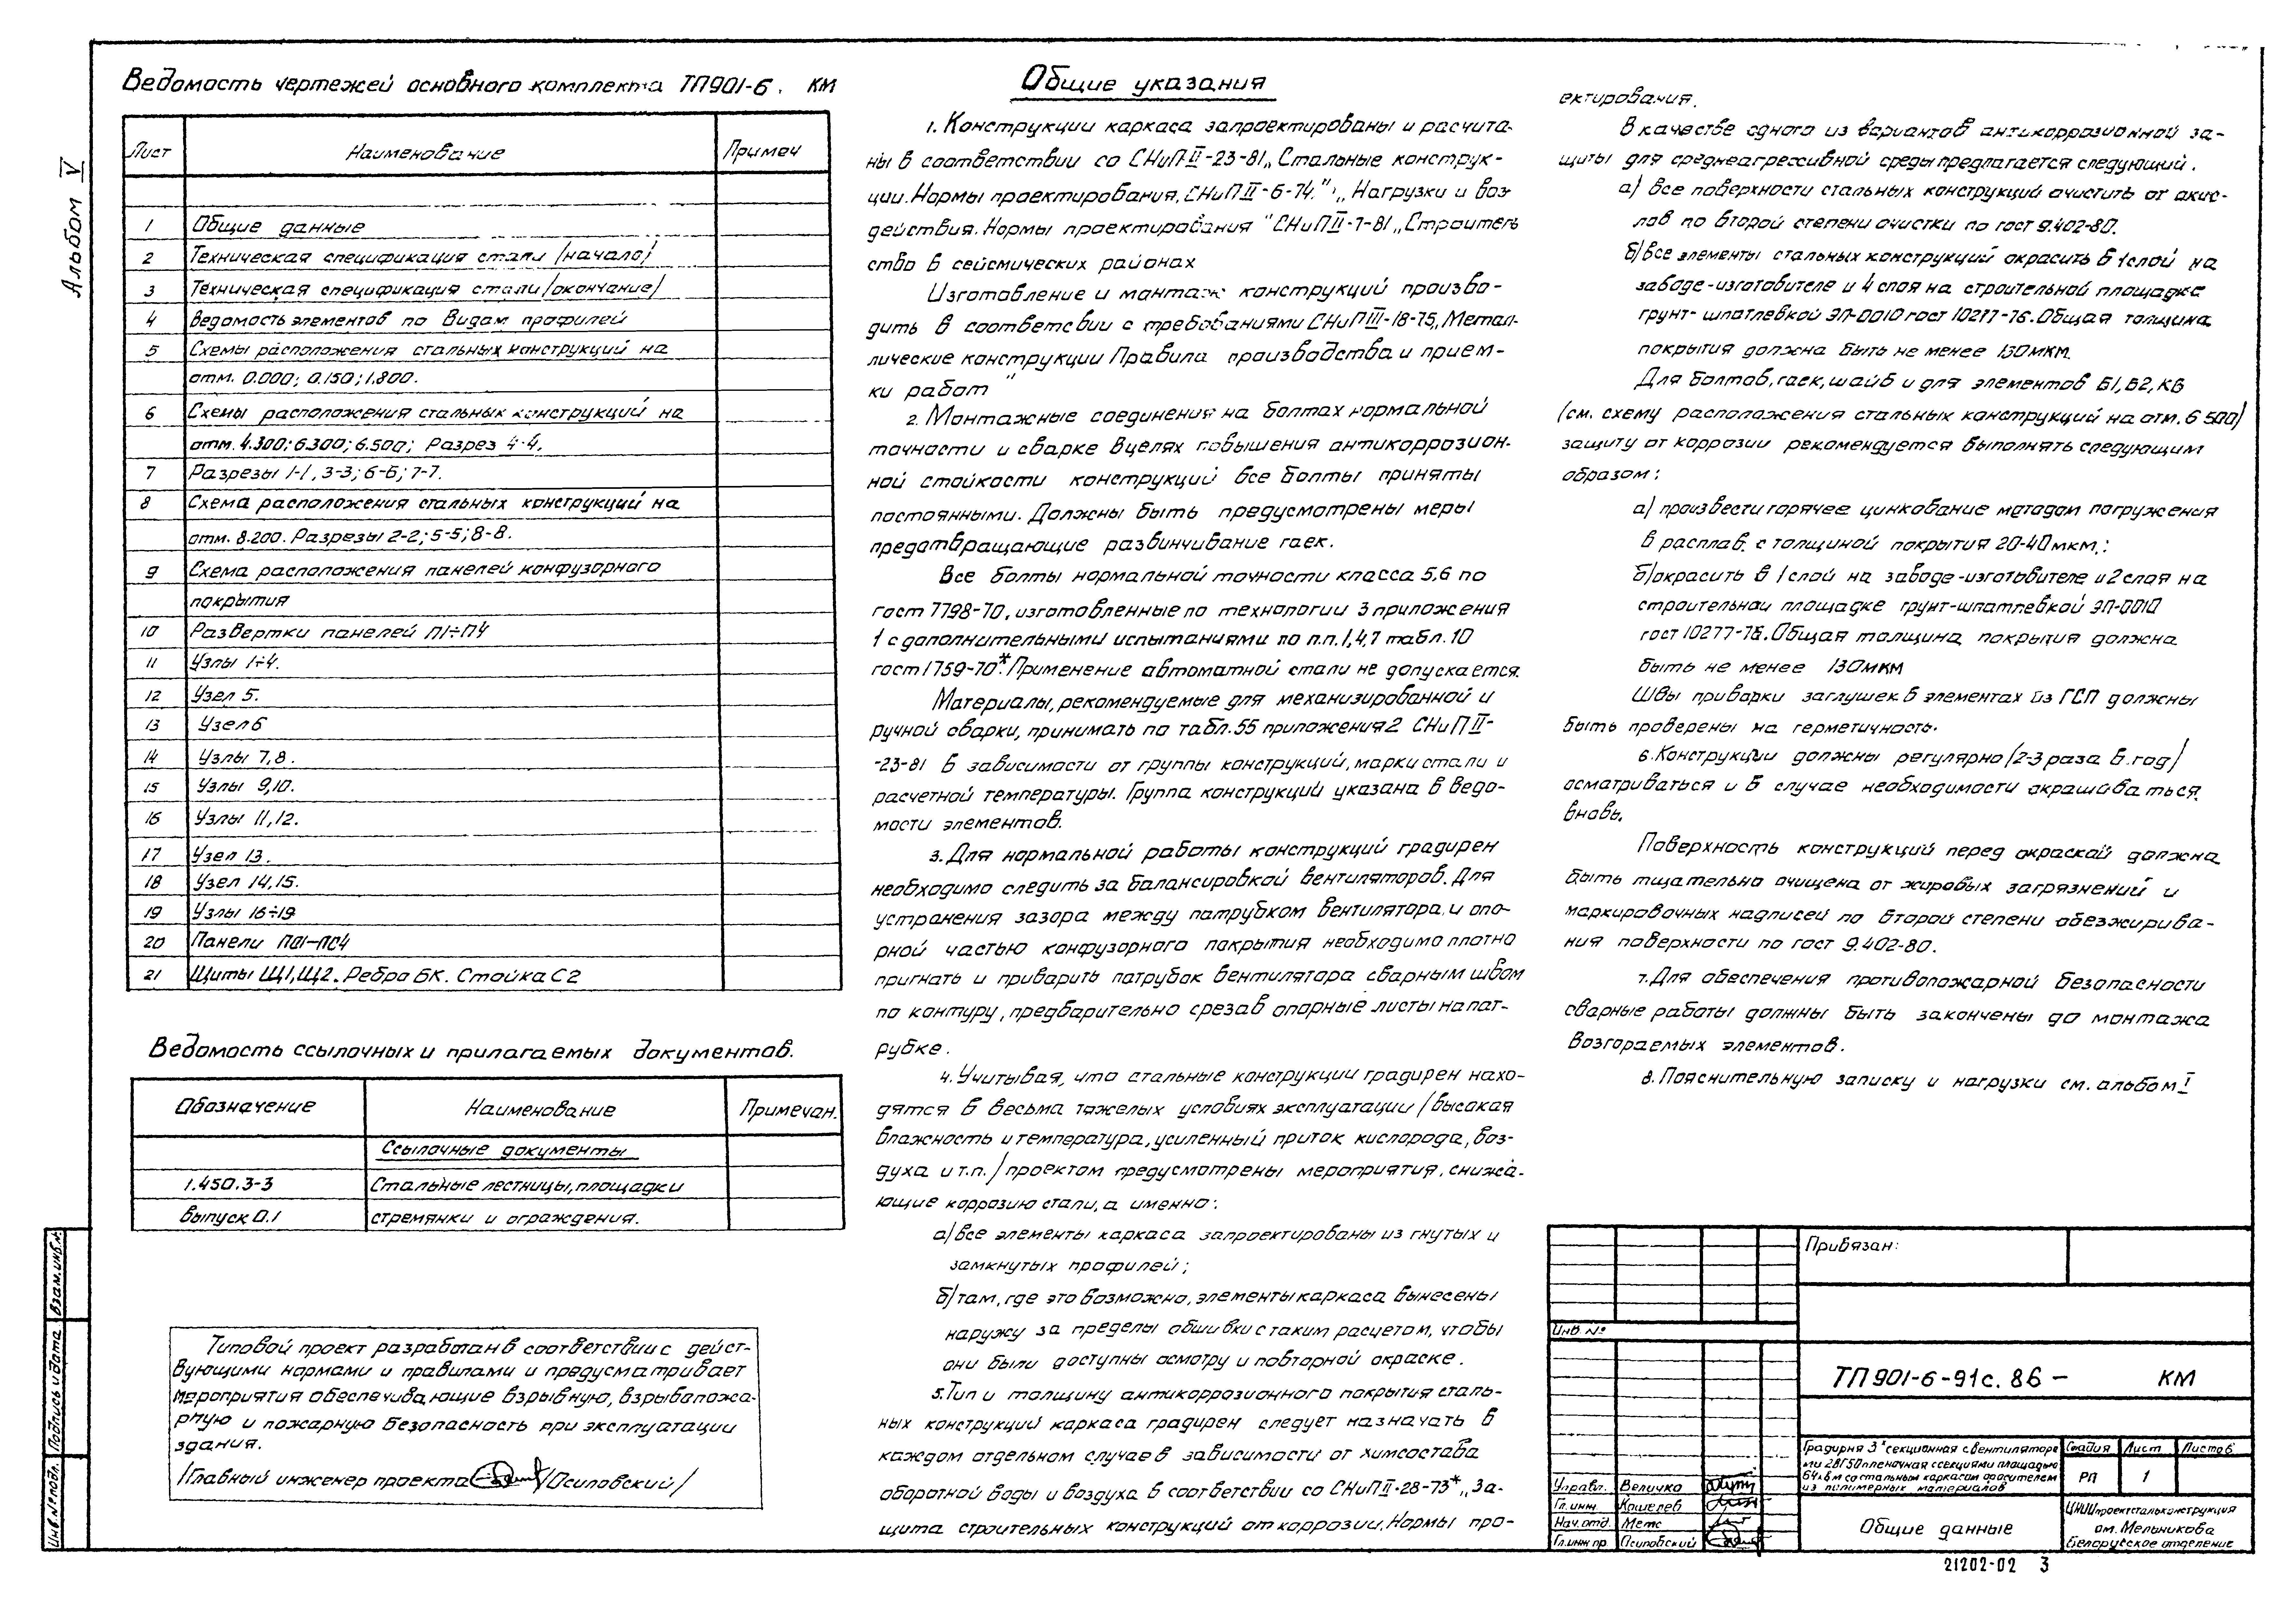 Альбом V
Ведомость чертежей основного комплекта ТП901-6. КМ
Лист Наименование Примеч
1 Общие данные
2 Техническая спецификация стали /начало/
3 Техническая спецификация стали /окончание/
4 Ведомость элементов по видам профилей
5 Схемы расположения стальных конструкций на
отм. 0.000; 0.150; 1.800.
6 Схемы расположения стальных конструкций на
отм. 4.300; 6.300; 6.500; Разрез 4-4.
7 Разрезы 1-1, 3-3; 6-6; 7-7.
8 Схема расположения стальных конструкций на
отм. 8.200. Разрезы 2-2; 5-5; 8-8.
9 Схема расположения панелей конфузорного
покрытия
10 Развертки панелей П1÷П4
11 Узлы 1÷4.
12 Узел 5.
13 Узел 6
14 Узлы 7,8.
15 Узлы 9,10.
16 Узлы 11,12.
17 Узел 13.
18 Узел 14,15.
19 Узлы 16÷19
20 Панели ПС1-ПС4
21 Щиты Щ1, Щ2. Ребра БК. Стойка С2
Ведомость ссылочных и прилагаемых документов.
Обозначение Наименование Примечан.
Ссылочные документы
1.450.3-3 Стальные лестницы, площадки
выпуск 0.1 стремянки и ограждения.
Типовой проект разработан в соответствии с дейст-
вующими нормами и правилами и предусматривает
мероприятия обеспечивающие взрывную, взрывопожа-
рную и пожарную безопасность при эксплуатации
здания.
/Главный инженер проекта /Осиповский/
Общие указания
1. Конструкции каркаса запроектированы и расчита-
ны в соответствии со СНиП II-23-81 „Стальные конструк-
ции. Нормы проектирования, СНиП II-6-74." „Нагрузки и воз-
действия. Нормы проектирования" СНиП II-7-81 „Строитель
ство в сейсмических районах
Изготовление и монтаж конструкций произво-
дить в соответсвии с требованиями СНиП III-18-75 „Метал-
лические конструкции Правила производства и прием-
ки работ"
2. Монтажные соединения на болтах нормальной
точности и сварке В целях повышения антикоррозион-
ной стойкости конструкций все болты приняты
постоянными. Должны быть предусмотрены меры
предотвращающие развинчивание гаек.
Все болты нормальной точности класса 5,6 по
гост 7798-70, изготовленные по технологии 3 приложения
1 с дополнительными испытаниями по п.п. 1,4,7 табл. 10
гост 1759-70*. Применение автоматной стали не допускается.
Материалы, рекомендуемые для механизированной и
ручной сварки, принимать по табл. 55 приложения 2 СНиП II-
-23-81 в зависимости от группы конструкций, марки стали и
расчетной температуры. Группа конструкций указана в ведо-
мости элементов.
3. Для нормальной работы конструкций градирен
необходимо следить за балансировкой вентиляторов. Для
устранения зазора между патрубком вентилятора и опо-
рной частью конфузорного покрытия необходимо плотно
пригнать и приварить патрубок вентилятора сварным швом
по контуру, предварительно срезав опорные листы на пат-
рубке.
4. Учитывая, что стальные конструкции градирен нахо-
дятся в весьма тяжелых условиях эксплуатации /высокая
влажность и температура, усиленный приток кислорода, воз-
духа и т.п./ проектом предусмотрены мероприятия, снижа-
ющие коррозию стали, а именно:
а/ все элементы каркаса запроектированы из гнутых и
замкнутых профилей;
б/ там, где это возможно, элементы каркаса вынесены
наружу за пределы обшивки с таким расчетом, чтобы
они были доступны осмотру и повторной окраске.
5. Тип и толщину антикоррозионного покрытия сталь-
ных конструкций каркаса градирен следует назначать в
каждом отдельном случае в зависимости от химсостава
оборотной воды и воздуха в соответствии со СНиП II-28-73*, „За-
щита строительных конструкций от коррозии. Нормы про-
ектирования.
В качестве одного из вариантов антикоррозионной за-
щиты для среднеагрессивной среды предлагается следующий.
а) все поверхности стальных конструкций очистить от окис-
лов по второй степени очистки по гост 9.402-80.
б/ все элементы стальных конструкций окрасить в 1 слой на
заводе-изготовителе и 4 слоя на строительной площадке
грунт-шпатлевкой ЭП-0010 гост 10277-76. Общая толщина
покрытия должна быть не менее 130 мкм.
Для болтов, гаек, шайб и для элементов Б1, Б2, КБ
(см. схему расположения стальных конструкций на отм. 6 500)
защиту от коррозии рекомендуется выполнять следующим
образом:
а) произвести горячее цинкование методом погружения
в расплав. с толщиной покрытия 20-40 мкм.;
б/ окрасить в 1 слой на заводе-изготовителе и 2 слоя на
строительной площадке грунт-шпатлевкой ЭП-0010
гост 10277-76. Общая толщина покрытия должна
быть не менее 130 мкм
Швы приварки заглушек в элементах из ГСП должны
быть проверены на герметичность.
6. Конструкции должны регулярно /2-3 раза в год/
осматриваться и в случае необходимости окрашиваться
вновь.
Поверхность конструкций перед окраской должна
быть тщательно очищена от жировых загрязнений и
маркировочных надписей по второй степени обезжирива-
ния поверхности по гост 9.402-80.
7. Для обеспечения противопожарной безопасности
сварные работы должны быть закончены до монтажа
возгораемых элементов.
8. Пояснительную записку и нагрузки см. альбом I
Привязан:
Инв. №
ТП 901-6-91с. 86 - КМ
Градирня 3х секционная с вентиляторе
ми 2ВГ50 пленочная с секциями площадью
64кв м со стальным каркасом оросителем
из полимерных материалов
Стадия Лист Листов
РП 1
Управл. Величко
Гл. инж. Кошелев
Нач. отд. Метс
Гл. инж пр. Осиповский
Общие данные
ЦНИИпроектстальконструкция
им. Мельникова
Белорусское отделение
21202-02 3
Инв. № подл. Подпись и дата Взам. инв. №